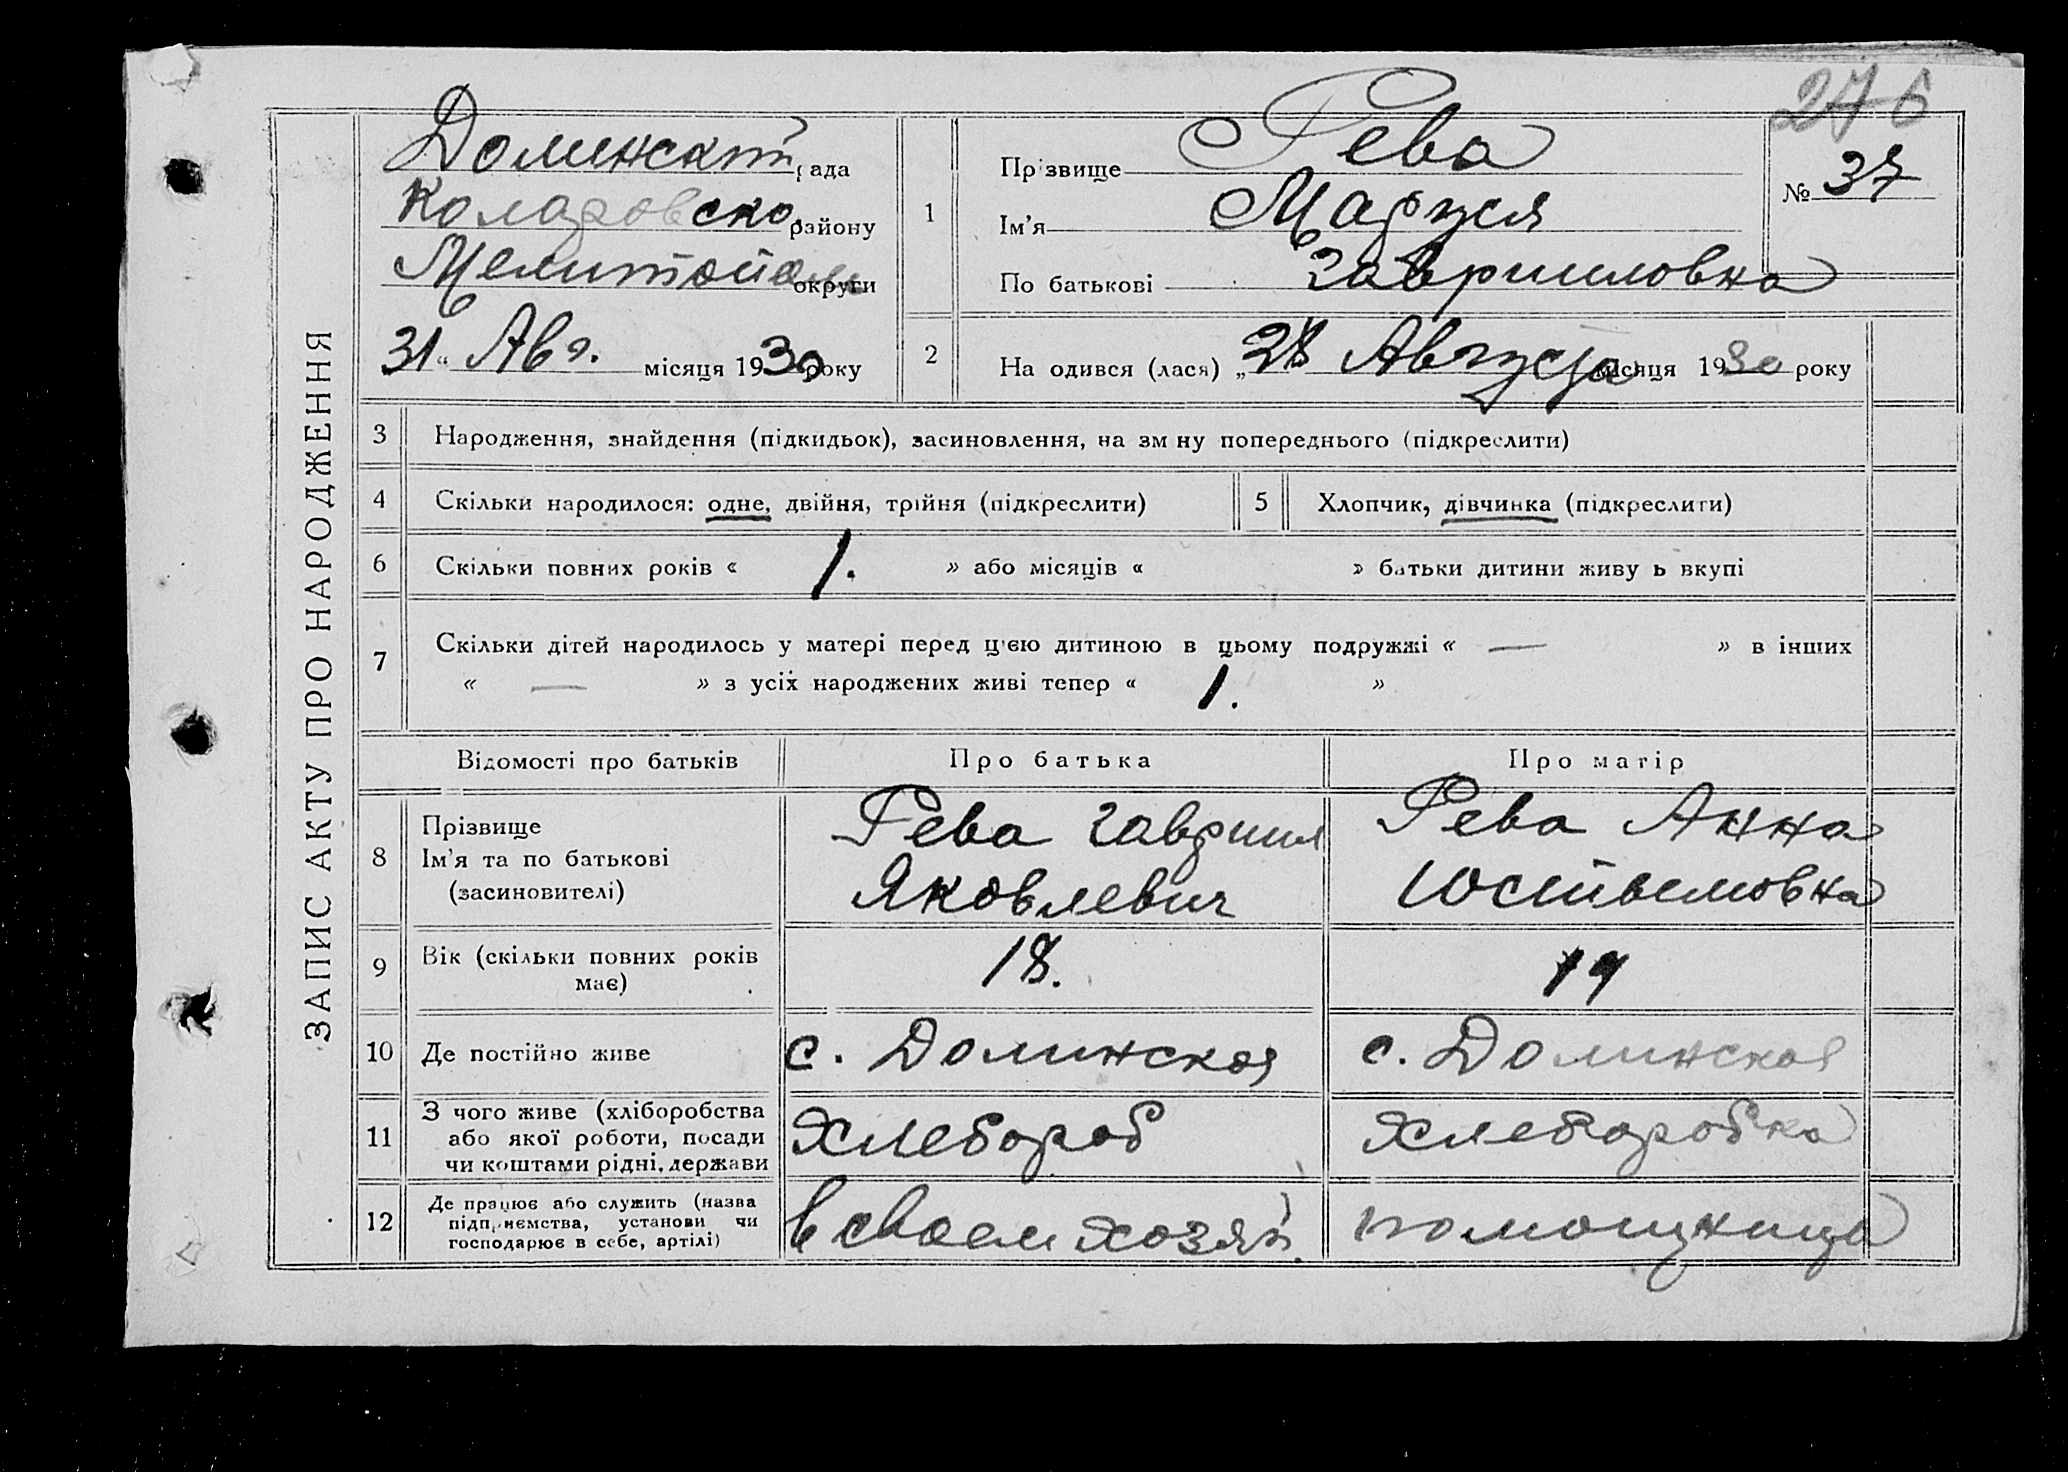 276
ЗАПИС АКТУ ПРО НАРОДЖЕННЯ
Долинскій рада
Коларовско району
Мелитопол округи
31 " Авг. місяця 1930 року
1
Прізвище Рева
Ім'я Маруся
По батькові Гаврииловна
№ 37
2
На одився (лася) „28 Августа місяця 1930 року
3 Народження, знайдення (підкидьок), засиновлення, на зм ну попереднього (підкреслити)
4 Скільки народилося: одне, двійня, трійня (підкреслити) 5 Хлопчик, дівчинка (підкреслити)
6 Скільки повних років « 1. » або місяців « » батьки дитини живу ь вкупі
7 Скільки дітей народилось у матері перед ц'єю дитиною в цьому подружжі « — » в інших
« — » з усіх народжених живі тепер « 1. »
Відомості про батьків Про батька Про матір
8 Прізвище
Ім'я та по батькові
(засиновителі)
Рева Гавриил
Яковлевич
Рева Анна
9 Вік (скільки повних років
має)
18.
19
10 Де постійно живе с. Долинская с. Долинская
11 З чого живе (хліборобства
або якої роботи, посади
чи коштами рідні, держави
Хлебороб
Хлеборобка
12 Де працює або служить (назва
підприємства, установи чи
господарює в себе, артілі)
в своем хозяй.
помощница